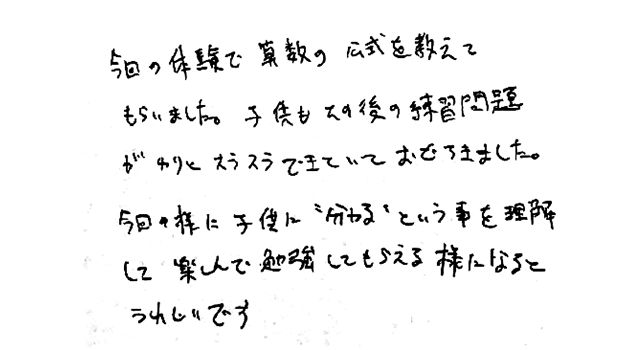 今回の体験で算数の公式を教えて
もらいました。子供もその後の練習問題
がわりとスラスラできていておどろきました。
今回の様に子供に"分かる"という事を理解
して楽しんで勉強してもらえる様になると
うれしいです